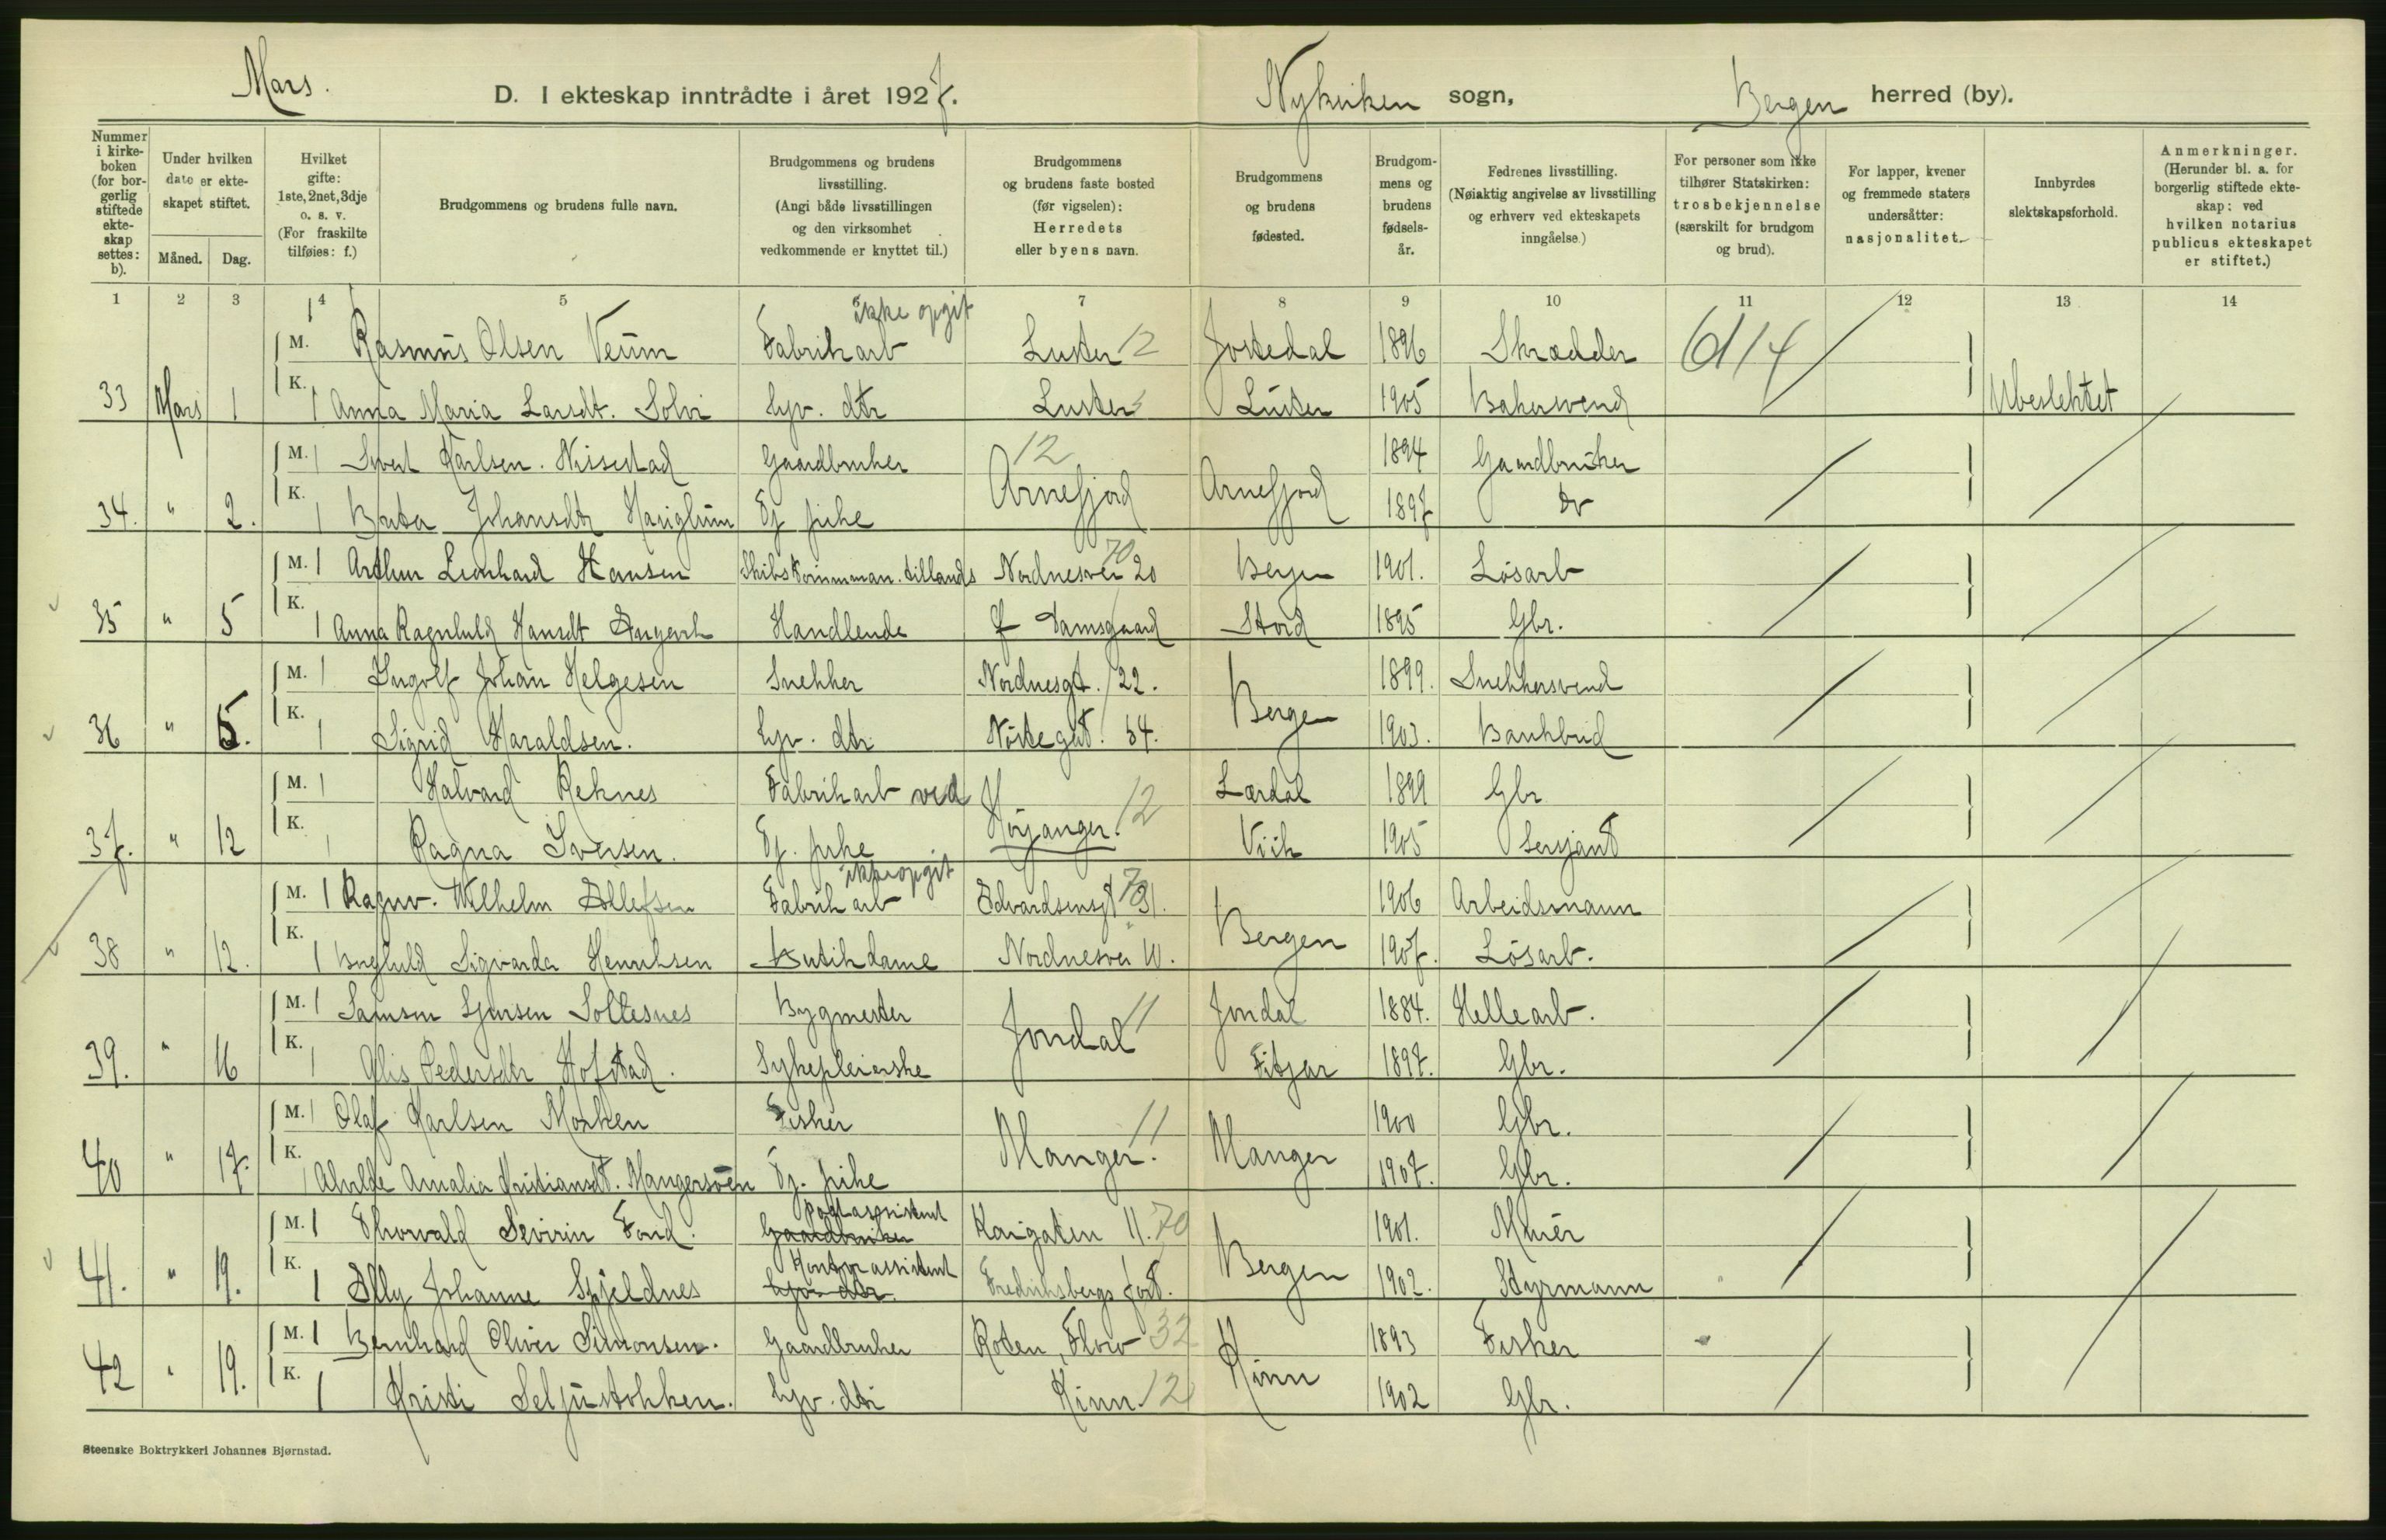 Mars.
D. I ekteskap inntrådte i året 1927.
Nykirken sogn,
Bergen herred (by).
Nummer i kirkeboken (for borgerlig stiftede ekteskap settes: b).
Under hvilken dato er ekteskapet stiftet.
Måned. Dag.
Hvilket gifte: 1ste, 2net, 3dje o. s. v. (For fraskilte tilføies: f.)
Brudgommens og brudens fulle navn.
Brudgommens og brudens livsstilling. (Angi både livsstillingen og den virksomhet vedkommende er knyttet til.)
Brudgommens og brudens faste bosted (før vigselen): Herredets eller byens navn.
Brudgommens og brudens fødested.
Brudgommens og brudens fødselsår.
Fedrenes livsstilling. (Nøiaktig angivelse av livsstilling og erhverv ved ekteskapets inngåelse.)
For personer som ikke tilhører Statskirken: trosbekjennelse (særskilt for brudgom og brud).
For lapper, kvener og fremmede staters undersåtter: nasjonalitet.
Innbyrdes slektskapsforhold.
Anmerkninger. (Herunder bl. a. for borgerlig stiftede ekteskap: ved hvilken notarius publicus ekteskapet er stiftet.)
1 2 3 4 5 7 8 9 10 11 12 13 14
ikke opgit
M. 1 Rasmus Olsen Veum Fabrikarb Luster 12 Jostedal 1896 Skrædder
33 Mars 1 K. 1 Anna Maria Larsdt. Solvi hjv. dtr Luster Luster 1905 Bakersvend Ubeslektet
M. 1 Sivert Karlsen Nissestad Gaardbruker 12 1894 Gaardbruker
34. " 2. K. 1 Johansdtr Tj pike Arnefjord Arnefjord 1897 do
M. 1 Arthur Leonhard Hansen Nordnesvei 20 70 Bergen 1901. Løsarb
35 " 5 K. 1 Anna Ragnhild Hansdt Handlende Damsgaard Stord 1895 Gbr.
M. 1 Ingolf Johan Helgesen Snekker Nordnesgt. 22. 1899. Snekkersvend
36 " 5. K. 1 Sigrid Haraldsen. hjv. dtr Nøstegat. 54. Bergen 1903. Bankbud
M. 1 Halvard Reknes Fabrikarb ved 12 Lærdal 1899 Gbr
37. " 12 K. 1 Ragna Iversen. Tj. pike Høyanger. Viik 1905 Sersjant
ikke opgit
M. 1 Ragnv. Wilhelm Ellefsen Fabrikarb Edvardsensgt 31. 70 1906 Arbeidsmann
38 " 12. K. 1 Sigvarda Henriksen Butikdame Nordnesvei 10. Bergen 1907. Løsarb.
M. 1 Samson Sjursen Soltesnes Bygmester 11 Jondal 1884. Hellearb.
39. " 16 K. 1 Pedersdtr Hofstad. Sykepleierske Jondal Fitjar 1897. Gbr.
M. 1 Olaf Karlsen Morken Fisker 11 1900 Gbr.
40 " 17. K. 1 Amalia Kristiansdt. Mangersøen Tj. pike Manger. Manger 1907. Gbr.
Postassistent
M. 1 Thorvald Severin Fond. Gaardbruker Kaigaten 11. 70 1901. Murer
Kontorassistent
41. " 19. K. 1 Elly Johanne Spjeldnes hjv. dtr. Fredriksbergs fort. Bergen 1902. Styrmann
M. 1 Bernhard Oliver Simonsen. Gaardbruker Roten, Florø 32 1893 Fisker
42 " 19. K. 1 Kristi Seljustokken. hjv. dtr Kinn 12 Kinn 1902 Gbr.
Steenske Boktrykkeri Johannes Bjørnstad.